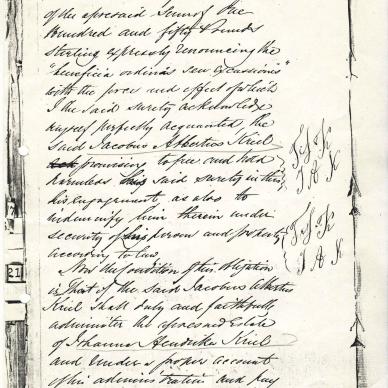 of the aforesaid Sum of One
Hundred and fifty Pounds
sterling expressly renouncing the
"beneficia ordinis seu excussionis"
with the force and effect of which
I the said surety acknowledge
myself perfectly acquainted the
said Jacobus Albertus Kriel
promising to free and hold
harmless his said surety in this
his engagement, as also to
indemnify him therein under
security of his person and property
according to law.
Now the Condition of this obligation
is That if the said Jacobus Albertus
Kriel shall duly and faithfully
administer the aforesaid Estate
of Johanna Hendrika Kriel
and render a proper account
of his administration and pay
J A K
J A K
21